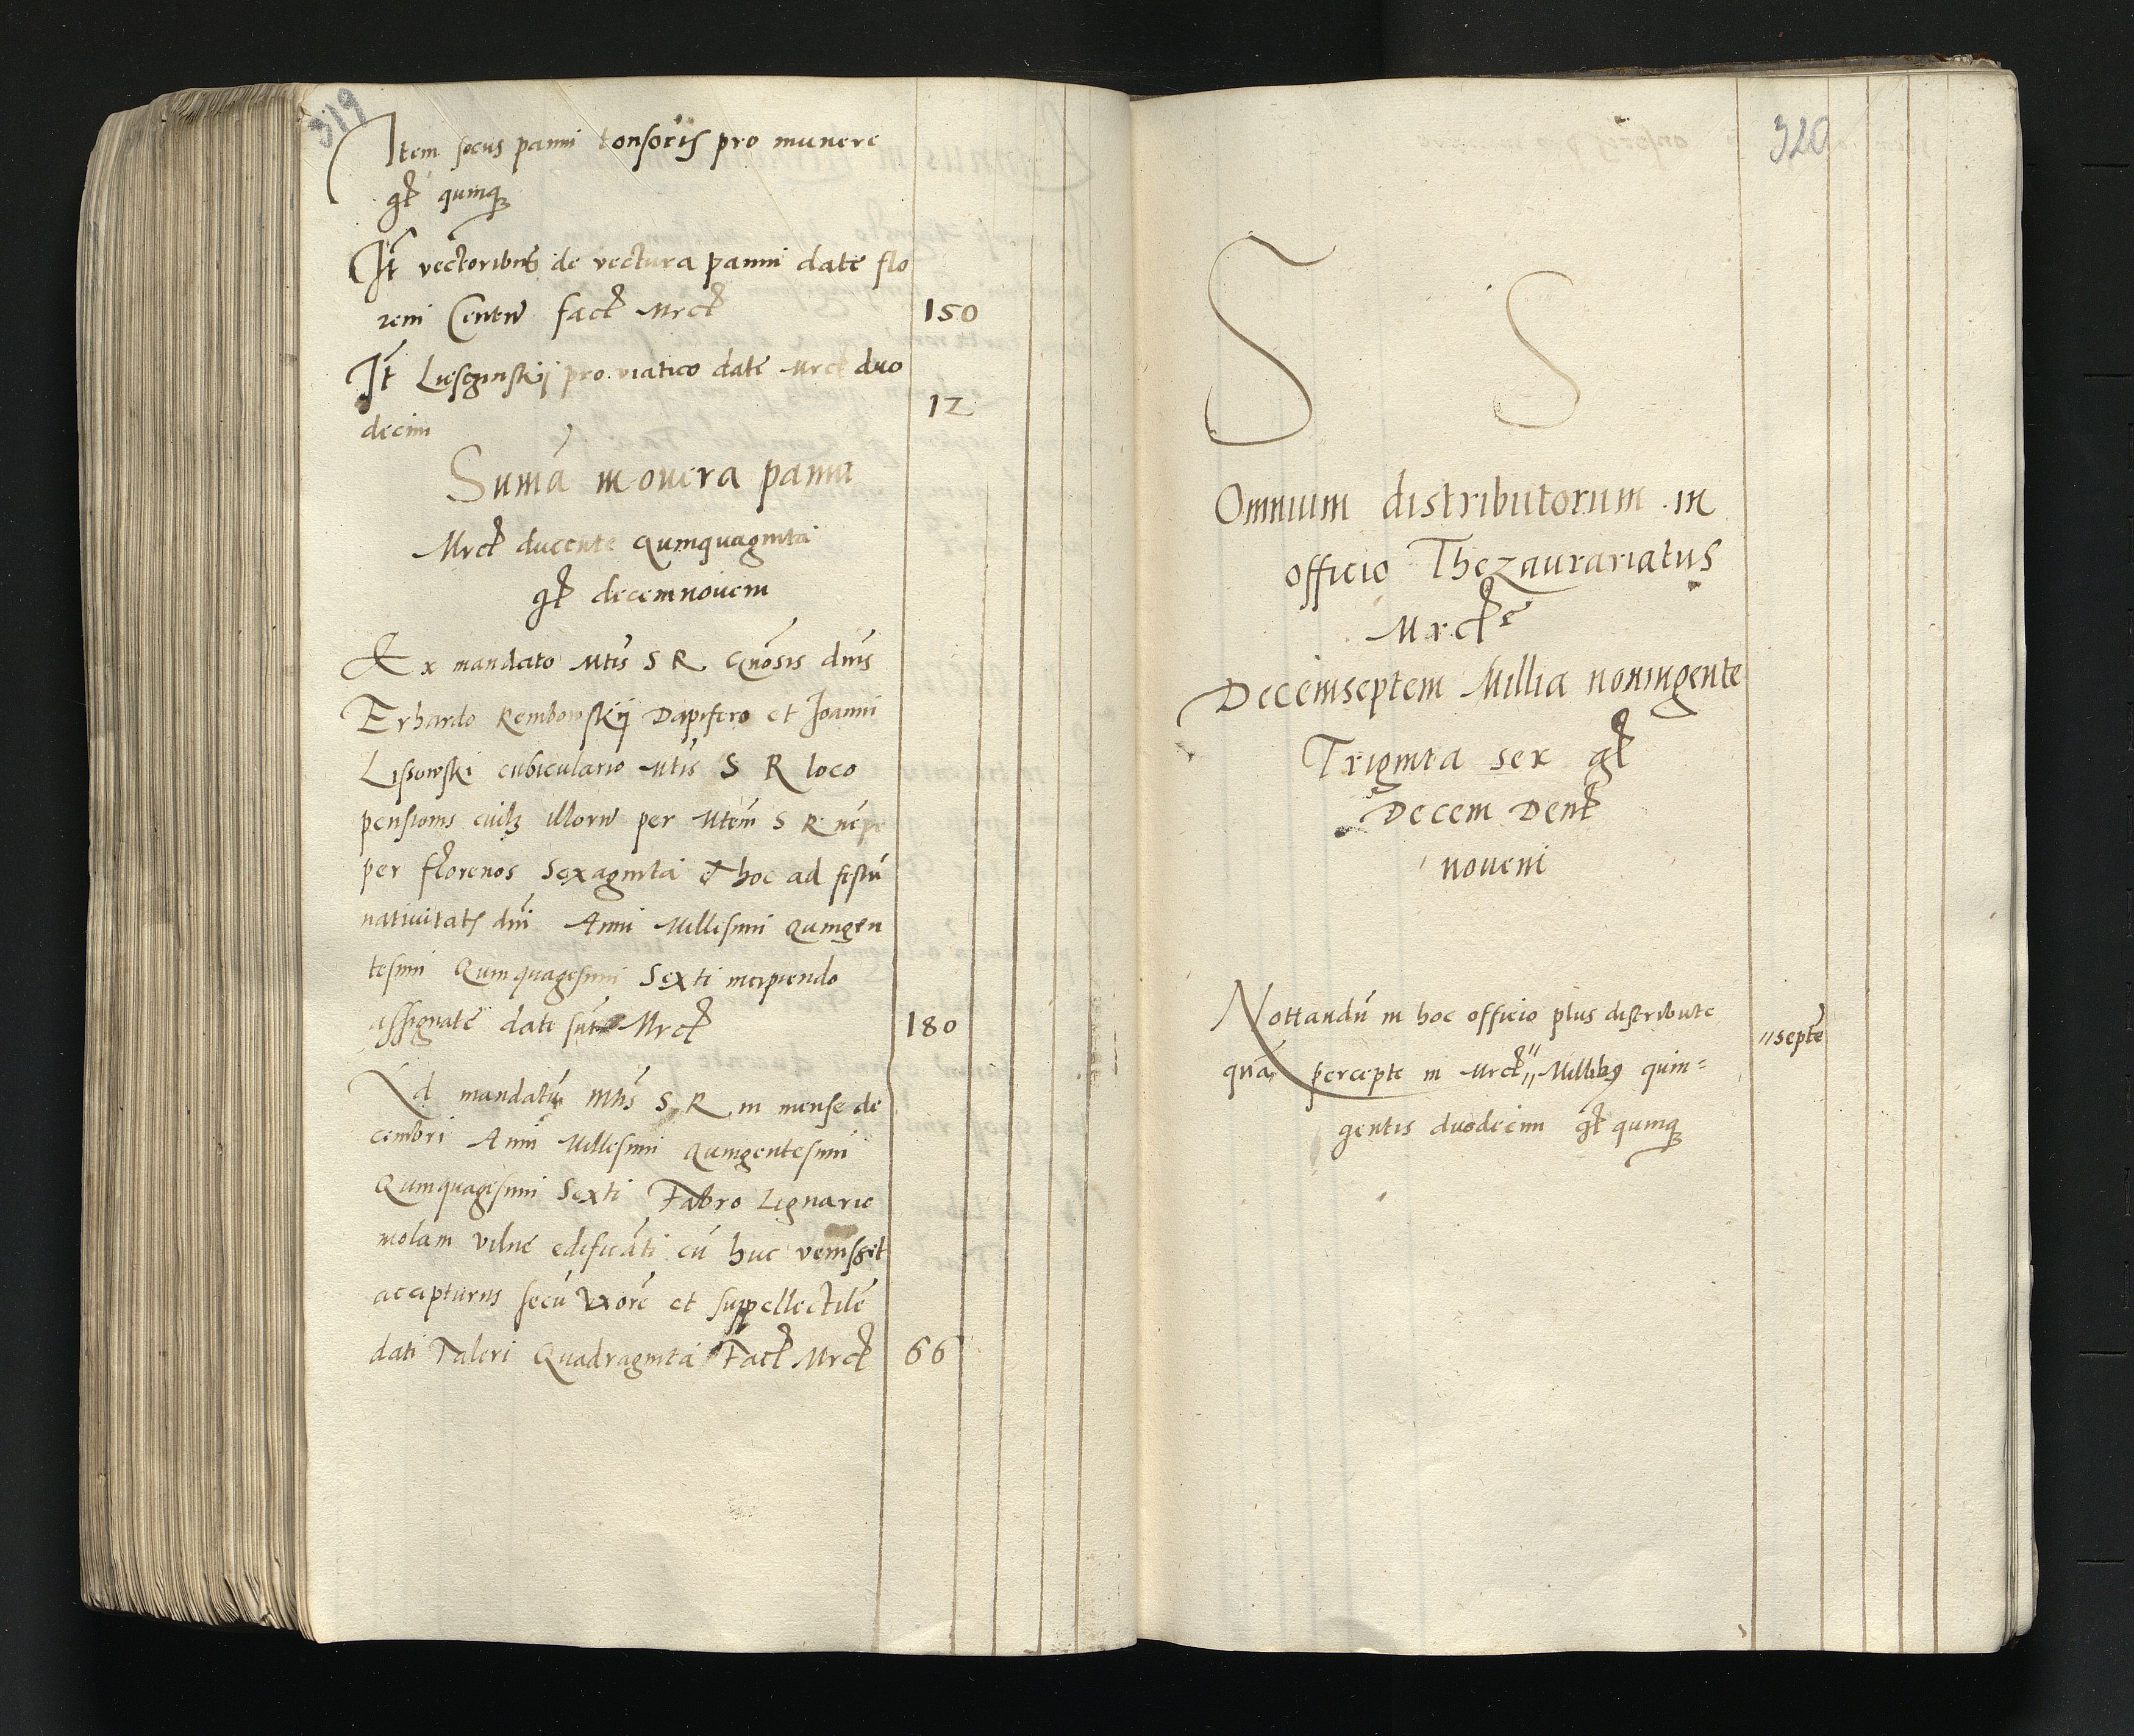 319
Item socus panni tonsoris pro munere
gł quinqꝫ
It̄ vectoribus de vectura panni datē flo
reni Centū fact Mrcł 150
It̄ Lusczinskij pro viatico datē Mrcł duo
decim 12
Sumā in overa panni
Mrcł ducente quinquaginta
gł decemnovem
Ex mandato Mtis S R Gnōsis dnīs
Erhardo Rembowskij Dapifero et Joanni
Lissowski cubiculario Mtis S R loco
pensionis cuilꝫ illorū per Mtem S R
per florenos Sexaginta et hoc ad festū
nativitatis dnī Anni Millesimi Quingen
tesimi Quinquagesimi Sexti incipiendo
assignatē dati sūt Mrcł 180
Ad mandatū Mtis S R in mense de
cembri Anni Millesimi quingentesimi
Quinquagesimi Sexti Fabro Lignario
molam vilne edificāti cū huc venisset
accepturus secū uxorē et suppellectilē
dati Taleri Quadraginta Fact Mrcł 66
320
S S
Omnium distributorum in
officio Thezaurariatus
Mrcłe
Decemseptem Millia noningente
Triginta sex gł
Decem Denł
novem
Nottandū in hoc officio plus distribute
quā percepte in Mrcł " Millibꝫ quin=
"septē
gentis duodecim gł quinqꝫ